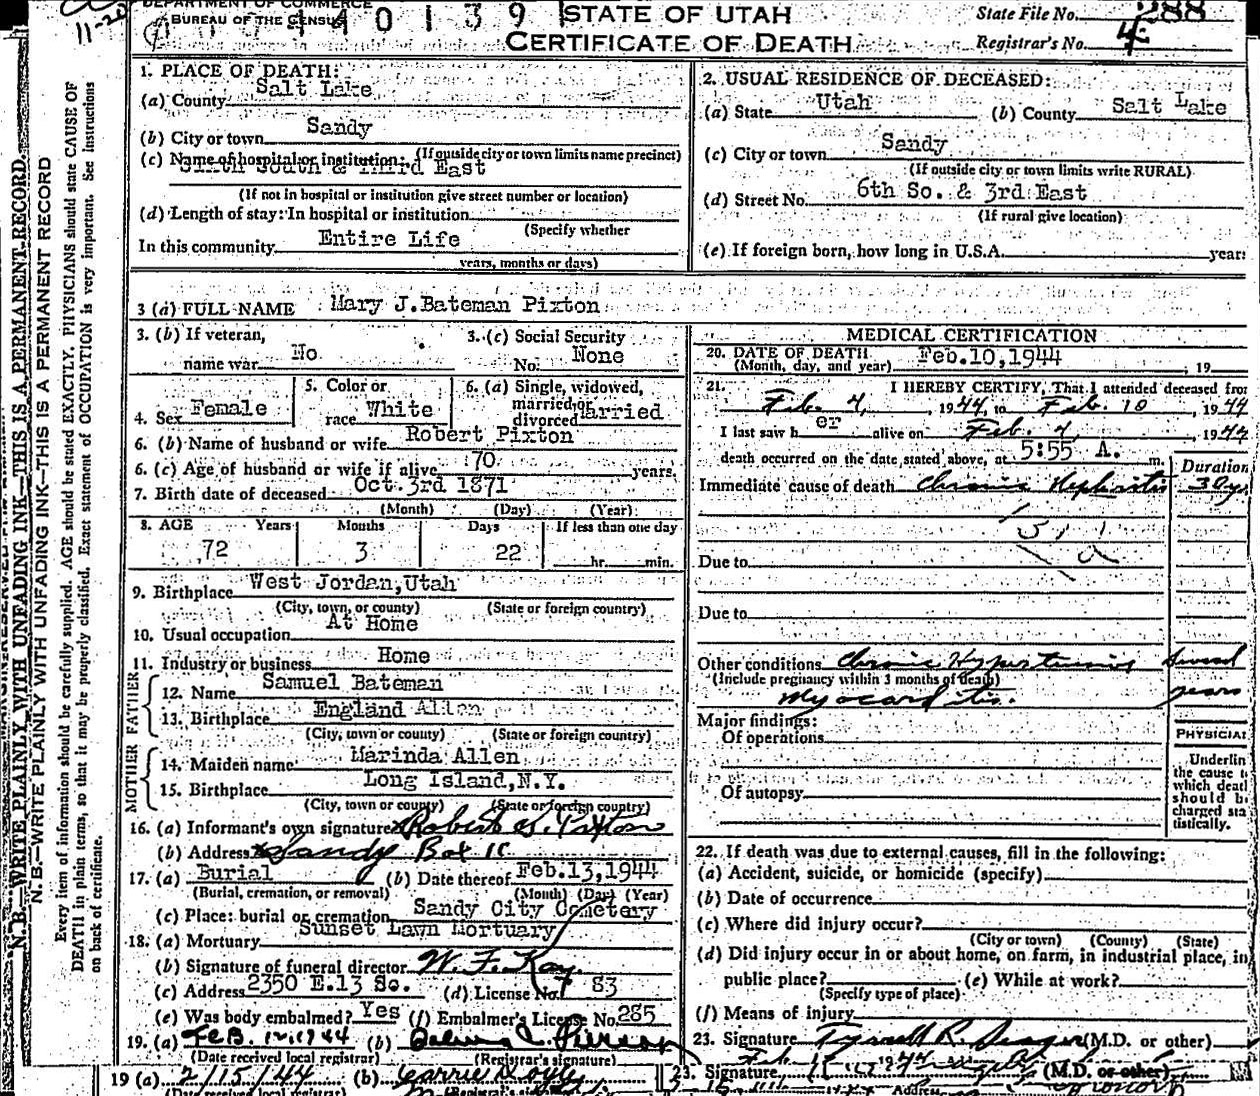 DEPARTMENT OF COMMERCE
BUREAU OF THE CENSUS
0 1 3 9
STATE OF UTAH
CERTIFICATE OF DEATH
State File No. 288
Registrar's No. 4
11-20
N.B.—WRITE PLAINLY WITH UNFADING INK—THIS IS A PERMANENT RECORD
N.B.—WRITE PLAINLY WITH UNFADING INK—THIS IS A PERMANENT RECORD
Every item of information should be carefully supplied. AGE should be stated EXACTLY. PHYSICIANS should state CAUSE OF
DEATH in plain terms, so that it may be properly classified. Exact statement of OCCUPATION is very important. See Instructions
on back of certificate.
1. PLACE OF DEATH:
(a) County Salt Lake
(b) City or town Sandy
(If outside city or town limits name precinct)
(c) Name of hospital or institution: Sixth South & Third East
(If not in hospital or institution give street number or location)
(d) Length of stay: In hospital or institution
(Specify whether
In this community Entire Life
years, months or days)
2. USUAL RESIDENCE OF DECEASED:
(a) State Utah (b) County Salt Lake
(c) City or town Sandy
(If outside city or town limits write RURAL)
(d) Street No. 6th So. & 3rd East
(If rural give location)
(e) If foreign born, how long in U.S.A. years
3 (a) FULL NAME Mary J. Bateman Pixton
3. (b) If veteran,
name war No
3. (c) Social Security
No. None
4. Sex Female
5. Color or
race White
6. (a) Single, widowed,
married or
divorced Married
6. (b) Name of husband or wife Robert Pixton
6. (c) Age of husband or wife if alive 70 years.
7. Birth date of deceased Oct. 3rd 1871
(Month) (Day) (Year)
8. AGE Years Months Days If less than one day
72 3 22 hr. min.
9. Birthplace West Jordan, Utah
(City, town, or county) (State or foreign country)
10. Usual occupation At Home
11. Industry or business Home
FATHER
12. Name Samuel Bateman
13. Birthplace England Allen
(City, town or county) (State or foreign country)
MOTHER
14. Maiden name Marinda Allen
15. Birthplace Long Island, N.Y.
(City, town or county) (State or foreign country)
16. (a) Informant's own signature Robert S. Pixton
(b) Address Sandy Box
17. (a) Burial (b) Date thereof Feb. 13, 1944
(Burial, cremation, or removal) (Month) (Day) (Year)
(c) Place: burial or cremation Sandy City Cemetery
18. (a) Mortuary Sunset Lawn Mortuary
(b) Signature of funeral director W. F. Kay
(c) Address 2350 E. 13 So. (d) License No. 83
(e) Was body embalmed? Yes (f) Embalmer's License No. 285
19. (a) FEB. 12, 1944 (b)
(Date received local registrar) (Registrar's signature)
19 (a) 2/15/44 (b) Carrie Doyle
(Date received local registrar)
MEDICAL CERTIFICATION
20. DATE OF DEATH Feb. 10, 1944
(Month, day, and year) , 19
21. I HEREBY CERTIFY, That I attended deceased from
Feb. 7, 1944, to Feb. 10, 1944
I last saw her alive on Feb. 7, 1944
death occurred on the date stated above, at 5:55 A. m.
Duration
Immediate cause of death Chronic Nephritis
Due to
Due to
Other conditions Chronic Hypertensive Several
(Include pregnancy within 3 months of death)
Myocarditis. years
Major findings:
Of operations
Of autopsy
PHYSICIAN
Underlin
the cause t
which deatl
should b
charged sta
tistically.
22. If death was due to external causes, fill in the following:
(a) Accident, suicide, or homicide (specify)
(b) Date of occurrence
(c) Where did injury occur?
(City or town) (County) (State)
(d) Did injury occur in or about home, on farm, in industrial place, in
public place? (e) While at work?
(Specify type of place)
(f) Means of injury
23. Signature (M.D. or other)
23. Signature (M.D. or other)
Address